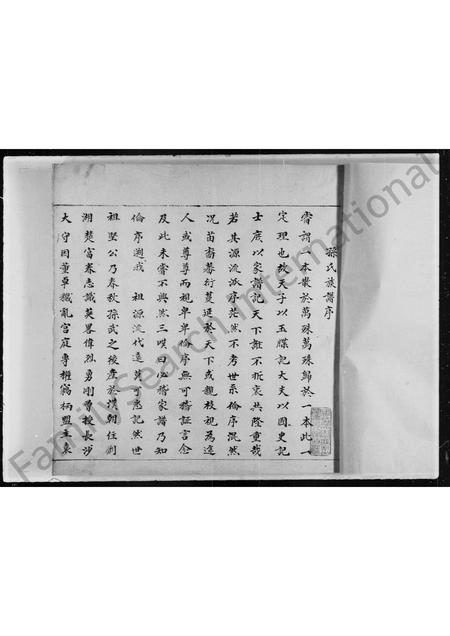 孫氏族譜序
嘗謂一本散於萬殊萬殊歸於一本此一
定理也故天子以玉牒記大夫以國史記
士庶以家譜記天下誰不祈衷共隆重哉
若其源流派序茫然不考世系倫序混然
况苗裔蕃衍蔓延於天下或親枝視為途
人或尊尊而視卑卑倫序無可稽証言念
及此未嘗不興然三嘆曰必稽家譜乃知
倫序適或 祖源流代遠莫可悉記然世
祖堅公乃春秋孫武之後產於漢朝住荆
湘楚富春志識英畧偉烈勇剛曾授長沙
大守因董卓擾亂宮庭專權竊柄盟主袁
FamilySearch International